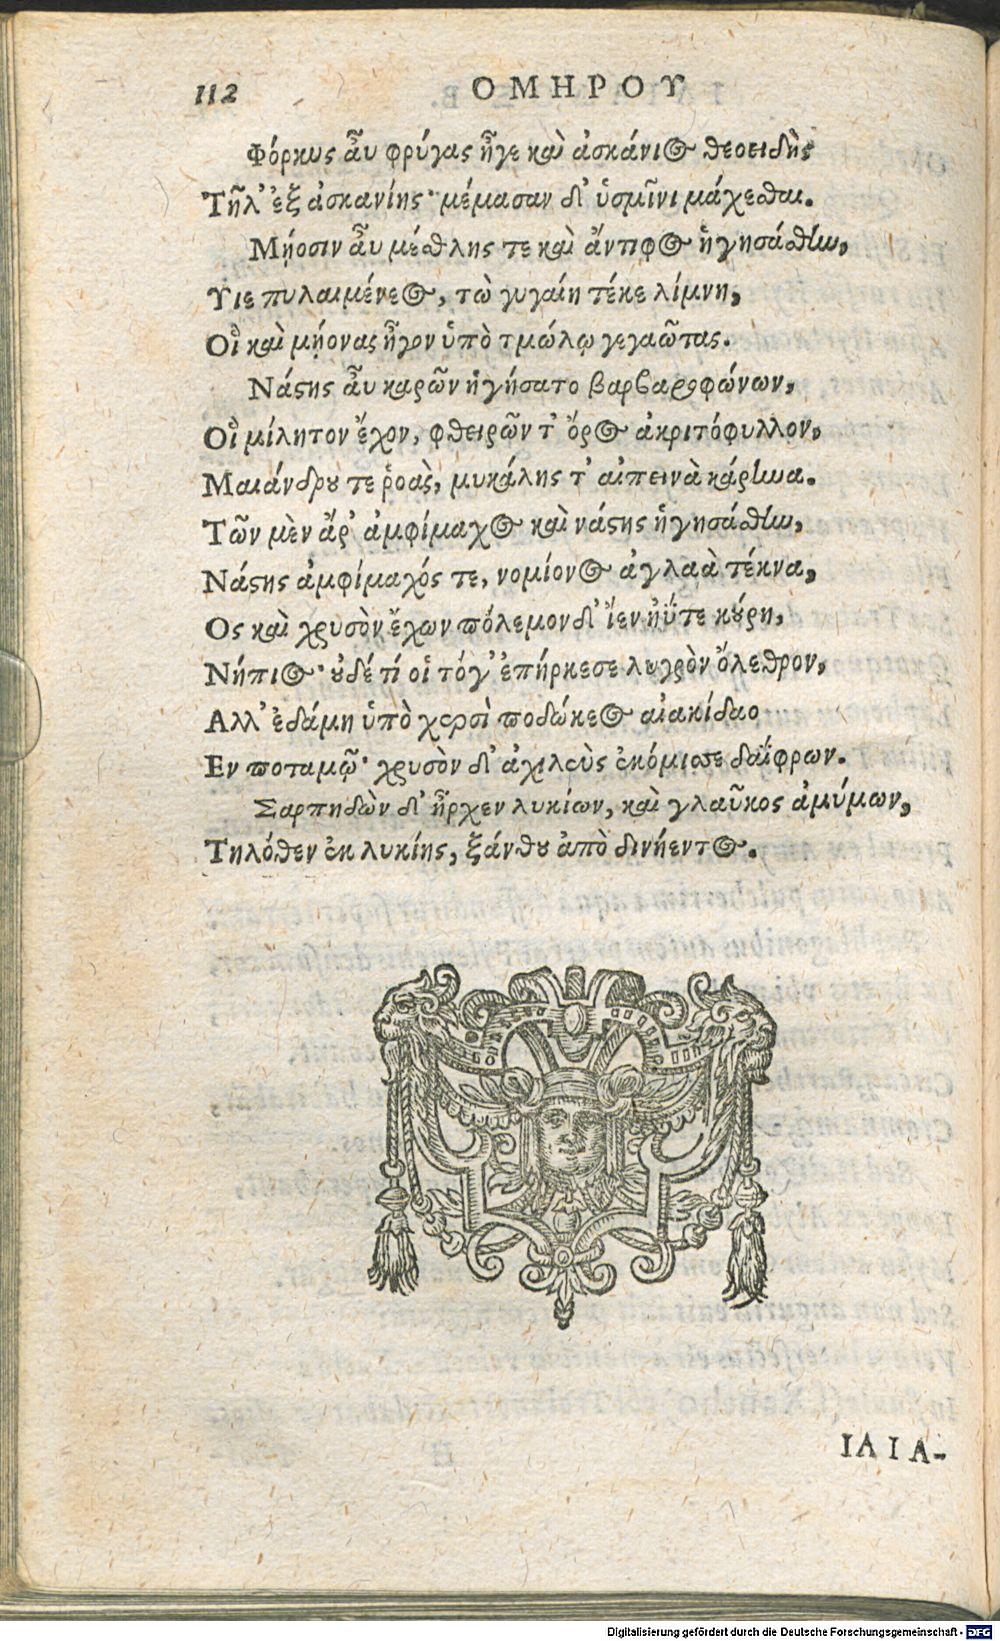 112 ΟΜΗΡΟΥ
Φόρκυς αὖ φρύγας ἦγε καὶ ἀσκάνιος θεοειδὴς
Τῆλ’ ἐξ ἀσκανίης· μέμασαν δ’ ὑσμῖνι μάχεσθαι.
Μῄοσιν αὖ μέσθλης τε καὶ ἄντιφος ἡγησάσθην,
Υἱε πυλαιμένεος, τὼ γυγαίη τέκε λίμνη,
Οἳ καὶ μῄονας ἦγον ὑπὸ τμώλῳ γεγαῶτας.
Νάστης αὖ καρῶν ἡγήσατο βαρβαροφώνων,
Οἳ μίλητον ἔχον, φθειρῶν τ’ ὄρος ἀκριτόφυλλον,
Μαιάνδρου τε ῥοὰς, μυκάλης τ’ αἰπεινὰ κάρηνα.
Τῶν μὲν ἄρ’ ἀμφίμαχος καὶ νάστης ἡγησάσθην,
Νάστης ἀμφίμαχός τε, νομίονος ἀγλαὰ τέκνα,
Ος καὶ χρυσὸν ἔχων πόλεμον δ’ ἴεν ἠΰτε κούρη,
Νήπιος· οὐδέ τί οἱ τόγ’ ἐπήρκεσε λυγρὸν ὄλεθρον,
Αλλ’ ἐδάμη ὑπὸ χερσὶ ποδώκεος αἰακίδαο
Εν ποταμῷ· χρυσὸν δ’ ἀχιλεὺς ἐκόμισσε δαΐφρων.
Σαρπηδὼν δ’ ἦρχεν λυκίων, καὶ γλαῦκος ἀμύμων,
Τηλόθεν ἐκ λυκίης, ξάνθου ἀπὸ δινήεντος.
ΙΛΙΑ-
Digitalisierung gefördert durch die Deutsche Forschungsgemeinschaft - DFG